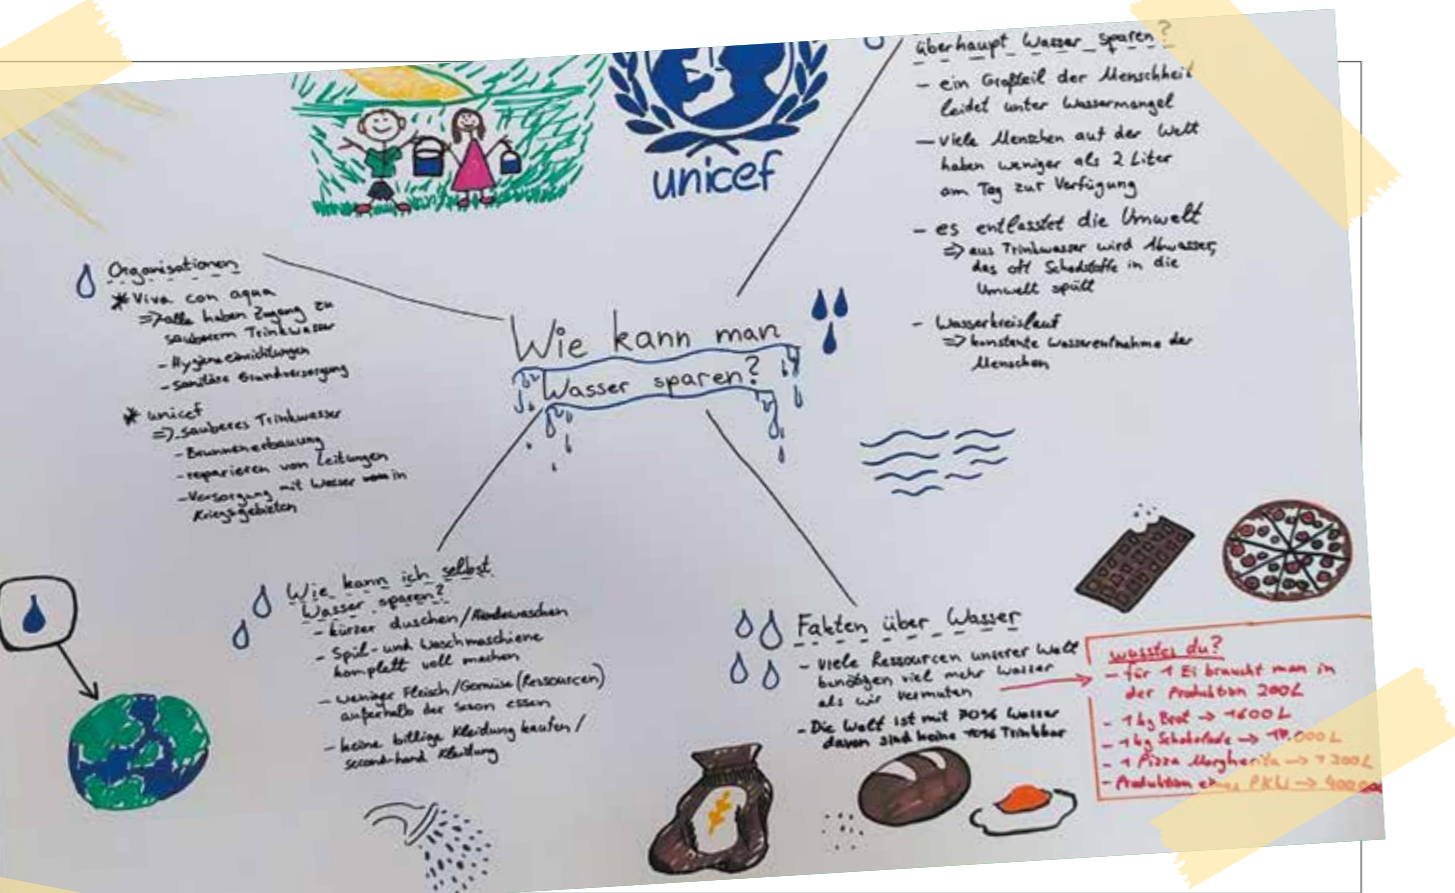 unicef
überhaupt Wasser sparen?
- ein Großteil der Menschheit
leidet unter Wassermangel
- viele Menschen auf der Welt
haben weniger als 2 Liter
am Tag zur Verfügung
- es entlasstet die Umwelt
=> aus Trinkwasser wird Abwasser,
das oft Schadstoffe in die
Umwelt spült
- Wasserkreislauf
=> konstante Wasserentnahme der
Menschen
Organisationen
* Viva con aqua
=> alle haben Zugang zu
sauberem Trinkwasser
- Hygieneeinrichtungen
- sanitäre Grundversorgung
* unicef
=> sauberes Trinkwasser
- Brunnenerbauung
- reparieren von Leitungen
- Versorgung mit Wasser in
Kriegsgebieten
Wie kann man
Wasser sparen?
Wie kann ich selbst
Wasser sparen?
- kürzer duschen/Händewaschen
- Spül- und Waschmaschiene
komplett voll machen
- weniger Fleisch/Gemüse (Ressourcen)
außerhalb der Saison essen
- keine billige Kleidung kaufen/
second-hand Kleidung
Fakten über Wasser
- viele Ressourcen unserer Welt
benötigen viel mehr Wasser
als wir vermuten
- Die Welt ist mit 70% Wasser
davon sind keine 10% Trinkbar
wusstes du?
- für 1 Ei braucht man in
der Produktion 200L
- 1kg Brot -> 1600L
- 1kg Schokolade -> 17.000L
- 1 Pizza Margherita -> 1300L
- Produktion eines PKW -> 400.000